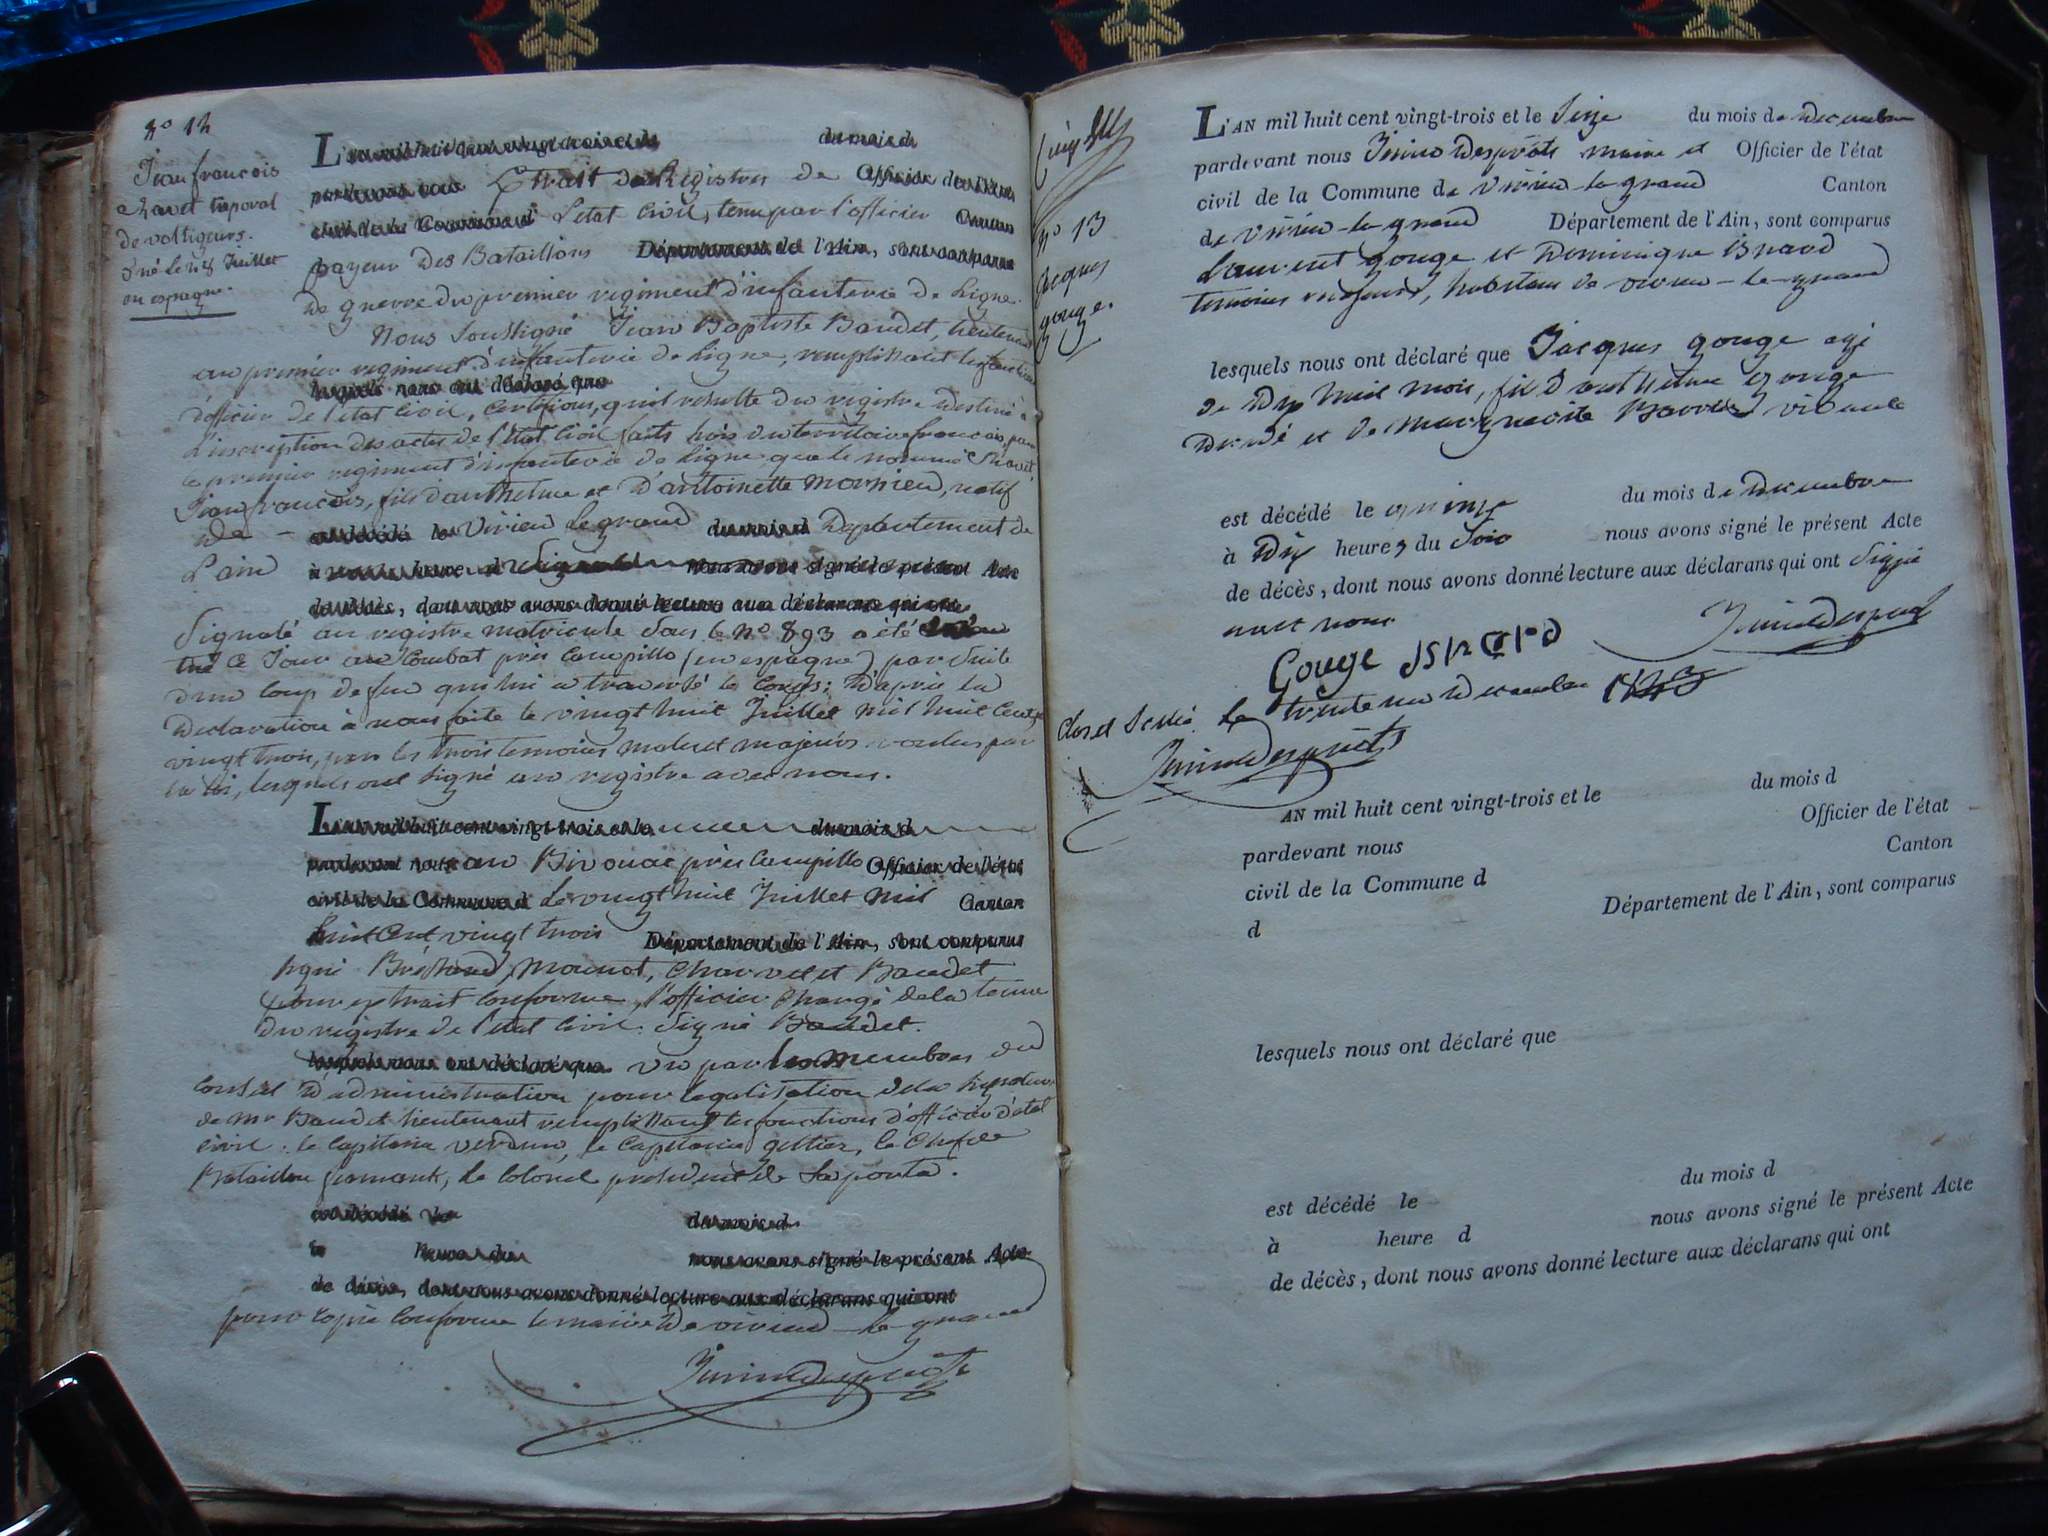 n° 12
Jean françois
chavet caporal
de voltigeurs.
né le 28 Juillet
en espagne.
L'an mil huit cent vingt-trois et le du mois d
pardevant nous Extrait des Registres de Officier de l'état
civil de la Commune d L'etat civil, tenu par l'officier Canton
payeur Des Bataillons Département de l'Ain, sont comparus
De guerre du premier regiment d'infanterie de Ligne.
Nous Soussigné Jean Baptiste Baudet, lieutenant
au premier regiment d'infanterie de Ligne, remplissant les fonctions
lesquels nous ont déclaré que
d'officier de l'etat civil, Certifions, qu'il resulte du registre Destiné à
L'inscription des actes de l'etat Civil faits hors du territoire francais, pour
le premier regiment d'infanterie de Ligne que le nommé Chavet
Jean francois, fils d'anthelme et D'antoinette Mornieu, natif
De est décédé le Virieu Le grand du mois d Departement de
L'ain à heure d nous avons signé le présent Acte
de décès, dont nous avons donné lecture aux déclarans qui ont
Signalé au registre matricule Sous le N° 893 a été
tué ce Jour au Combat près Campillo (en espagne) par Suite
d'un Coup de feu qui lui a traversé le Corps; D'après la
Declaration à nous faite le vingt huit Juillet mil huit Cent
vingt trois, par les trois temoins males et majeurs voulus par
la loi, lesquels ont signé au registre avec nous.
L'an mil huit cent vingt-trois et le du mois d
pardevant nous au Bivouac près Campillo Officier de l'état
civil de la Commune d Le vingt huit Juillet mil Canton
huit Cent vingt trois Département de l'Ain, sont comparus
signé Mounot, Charvet et Baudet
pour extrait Conforme, l'officier Chargé de la tenue
Du registre de l'etat Civil. Signé Baudet.
lesquels nous ont déclaré que vu par les membres du
Conseil D'administration pour legalisation de la signature
de Mr Baudet lieutenant remplissant les fonctions d'officier d'etat
Civil : le Capitaine verdun, le Capitaine le Chef de
Bataillon le Colonel president de Laponta.
est décédé le du mois d
à heure du nous avons signé le présent Acte
de décès, dont nous avons donné lecture aux déclarans qui ont
pour copie Conforme le maire De virieu-le-grand
n° 13
Jacques
gouge.
L'AN mil huit cent vingt-trois et le Seize du mois de Decembre
pardevant nous Desprôts maire et Officier de l'état
civil de la Commune de virieu-le-grand Canton
de virieu-le-grand Département de l'Ain, sont comparus
Laurent gouge et Dominique isnard
temoins majeurs, habitans de virieu-le-grand
lesquels nous ont déclaré que Jacques gouge agé
de Dix huit mois, fils d'anthelme gouge
et de Marguerite vivante
est décédé le quinze du mois de Decembre
à Dix heures du Soir nous avons signé le présent Acte
de décès, dont nous avons donné lecture aux déclarans qui ont Signé
avec nous.
Gouge isnard
Clos et le trente un Decembre 1823
AN mil huit cent vingt-trois et le du mois d
pardevant nous Officier de l'état
civil de la Commune d Canton
d Département de l'Ain, sont comparus
lesquels nous ont déclaré que
est décédé le du mois d
à heure d nous avons signé le présent Acte
de décès, dont nous avons donné lecture aux déclarans qui ont